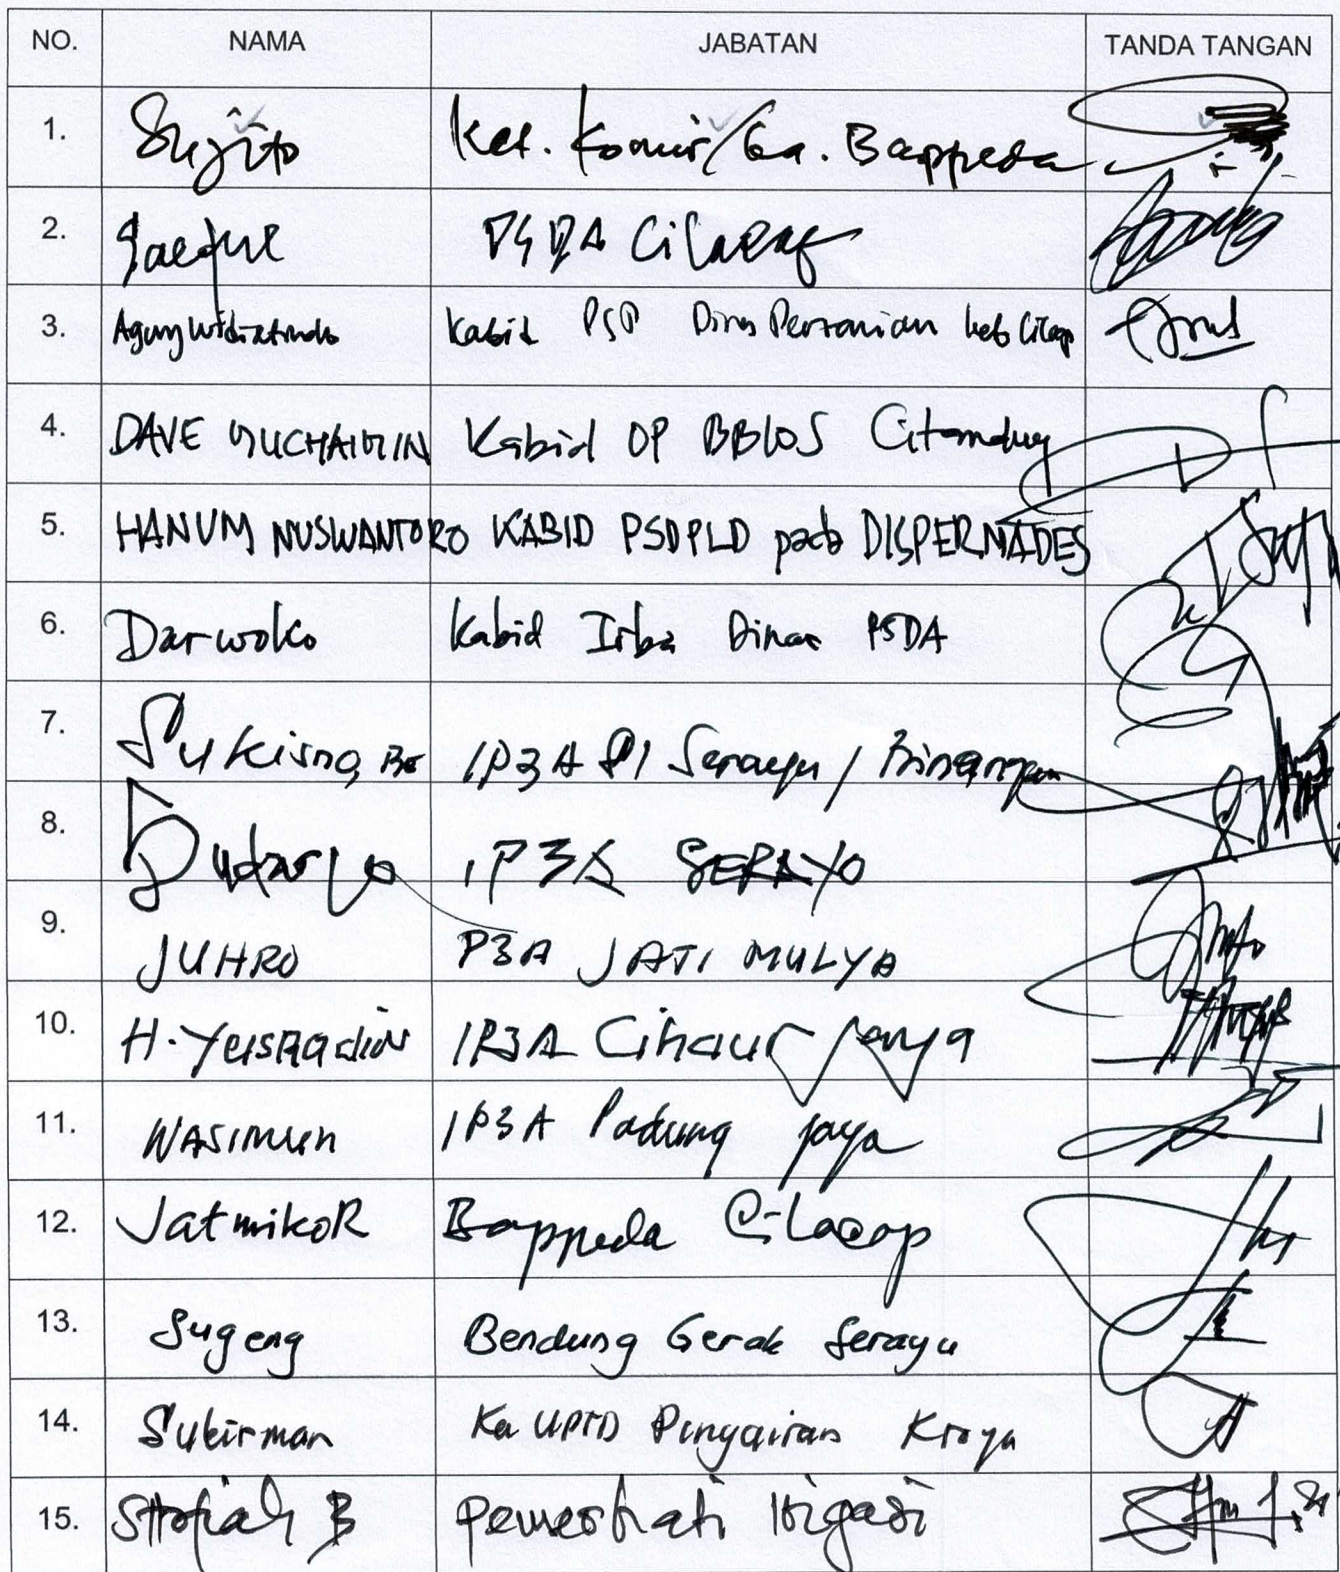 NO. NAMA JABATAN TANDA TANGAN
1. Sujito Ket. Komir/Ka. Bappeda
2. Saeful PSDA Cilacap
3. Agung Kabid PSP Dinas Pertanian kab Cilcap
4. DAVE Kabid OP BBWS Citanduy
5. HANUM NUSWANTORO KABID PSDPLD pada DISPERMADES
6. Darwoko Kabid Irba Dinas PSDA
7. Sukisno BE IP3A DI Serayu / Binangun
8. IP3A SERAYO
9. JUHRO P3A JATI MULYA
10. H. IP3A Cihaur Jaya
11. WASIMUN IP3A Padung jaya
12. Jatmiko R Bappeda Cilacap
13. Sugeng Bendung Gerak Serayu
14. Sukirman Ka UPTD Pengairan Kroya
15. B Pemerhati Irigasi